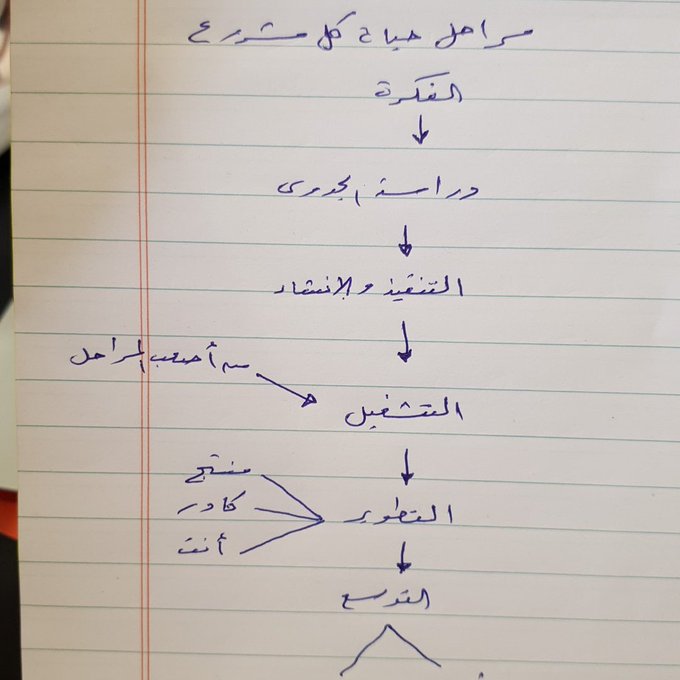 مراحل حياة كل مشروع
الفكرة
دراسة الجدوى
التنفيذ والإنشاء
من أصعب المراحل
التشغيل
التطوير
منتج
كادر
أنت
التوسع